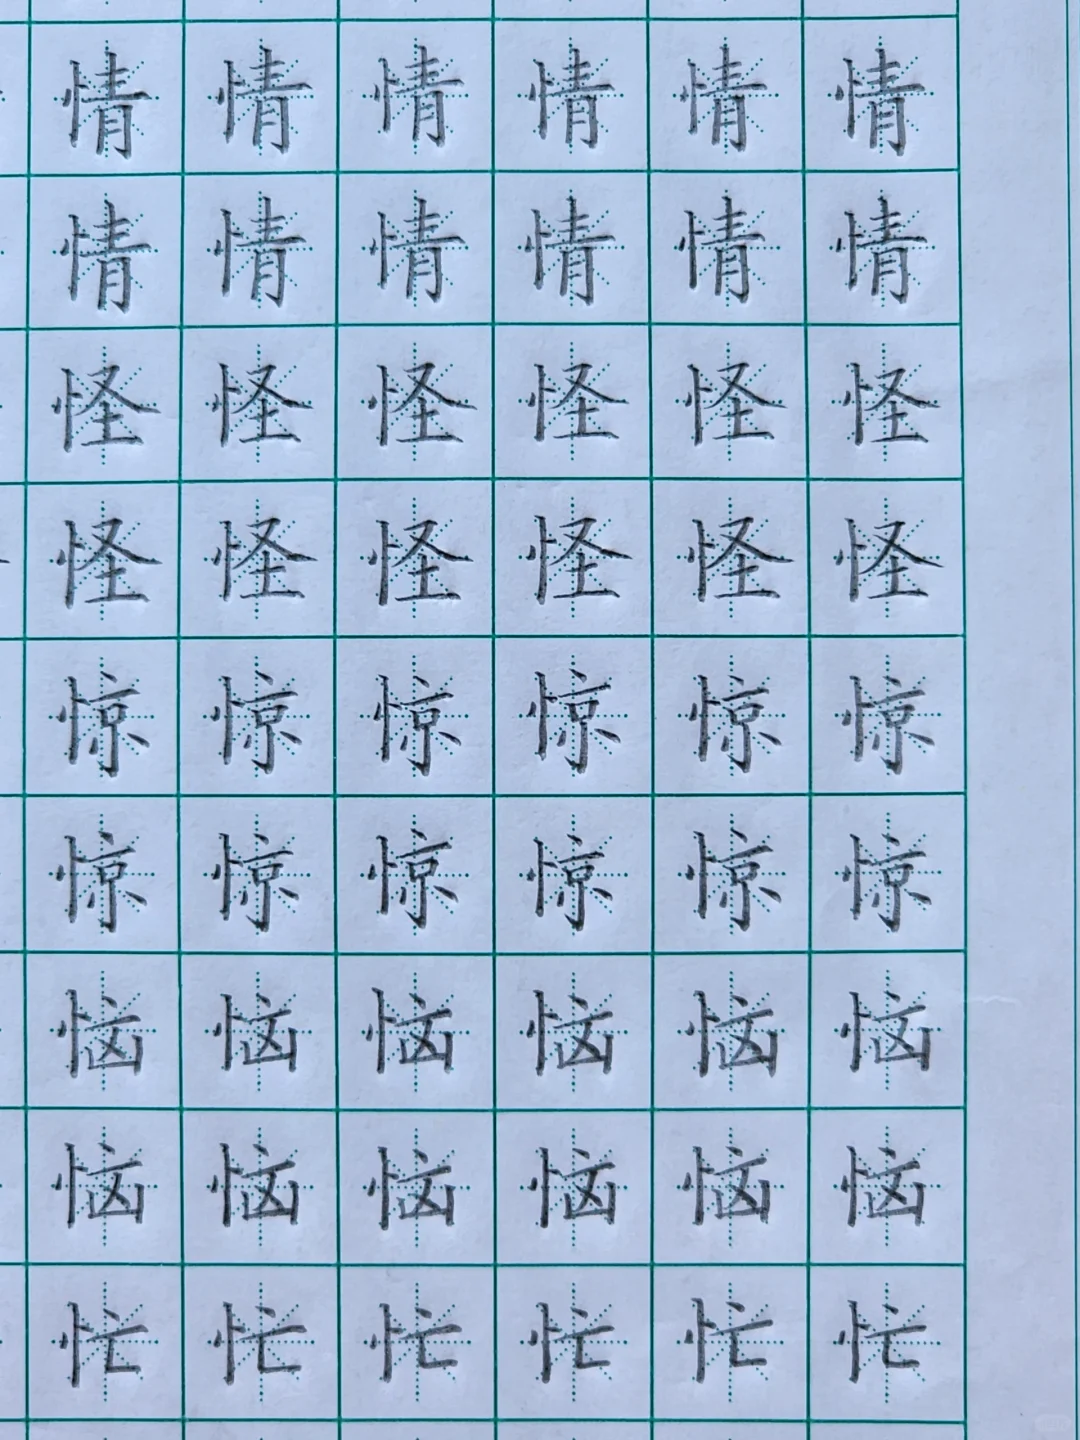 情情情情情情
情情情情情情
怪怪怪怪怪怪
怪怪怪怪怪怪
惊惊惊惊惊惊
惊惊惊惊惊惊
恼恼恼恼恼恼
恼恼恼恼恼恼
忙忙忙忙忙忙